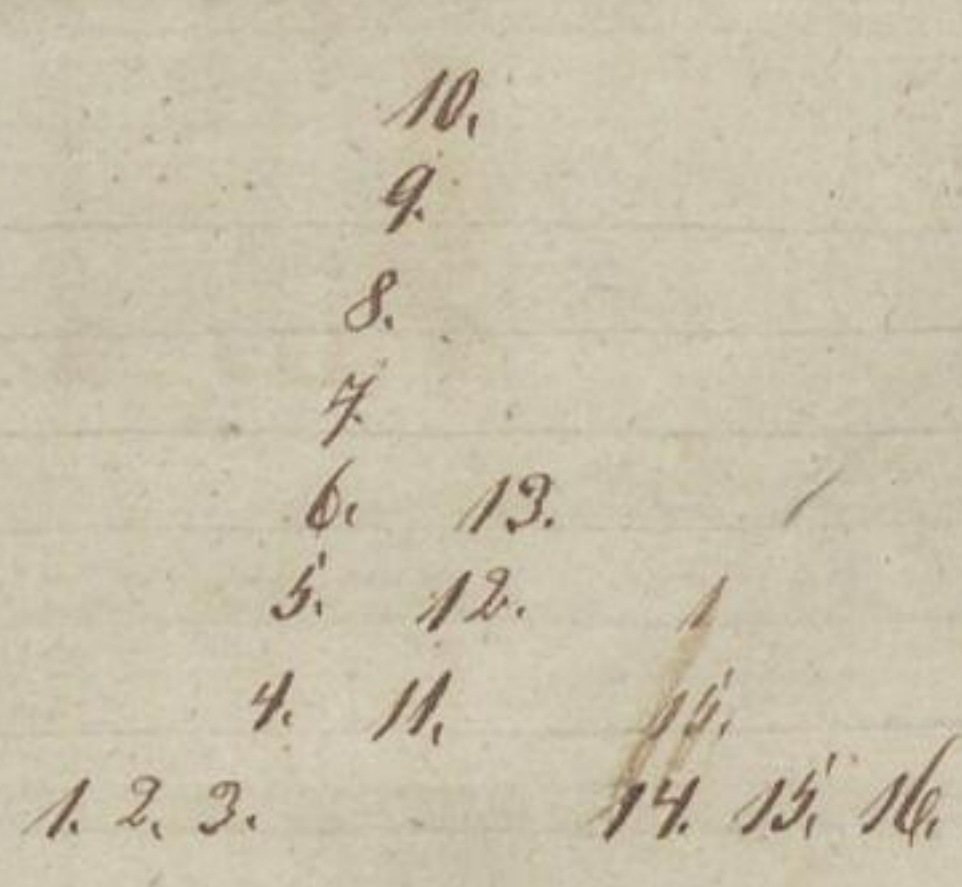 10.
9.
8.
7.
6. 13.
5. 12. 1
4. 11. 15.
1. 2. 3. 14. 15. 16.